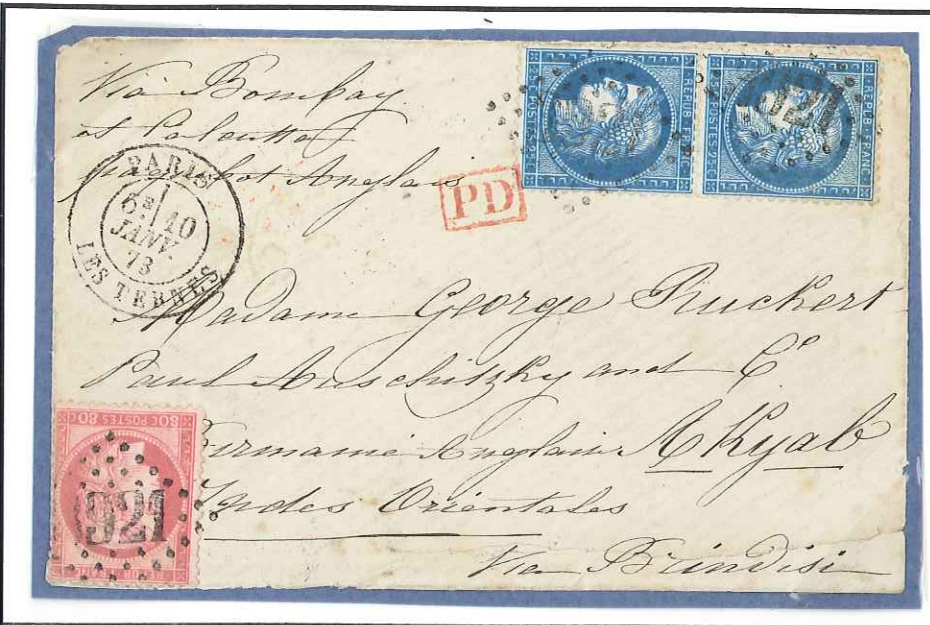 Via Bombay
et Calcutta
paquebot Anglais
PARIS
6E 10
JANV.
73
LES TERNES
PD
REPUB FRANC
25 C POSTES 25 C
REPUB FRANC
25 C POSTES 25 C
Madame George Ruckert
Paul and Co
Birmanie Anglaise AKyab
Indes Orientales
Via Brindisi
80C POSTES 80C
921